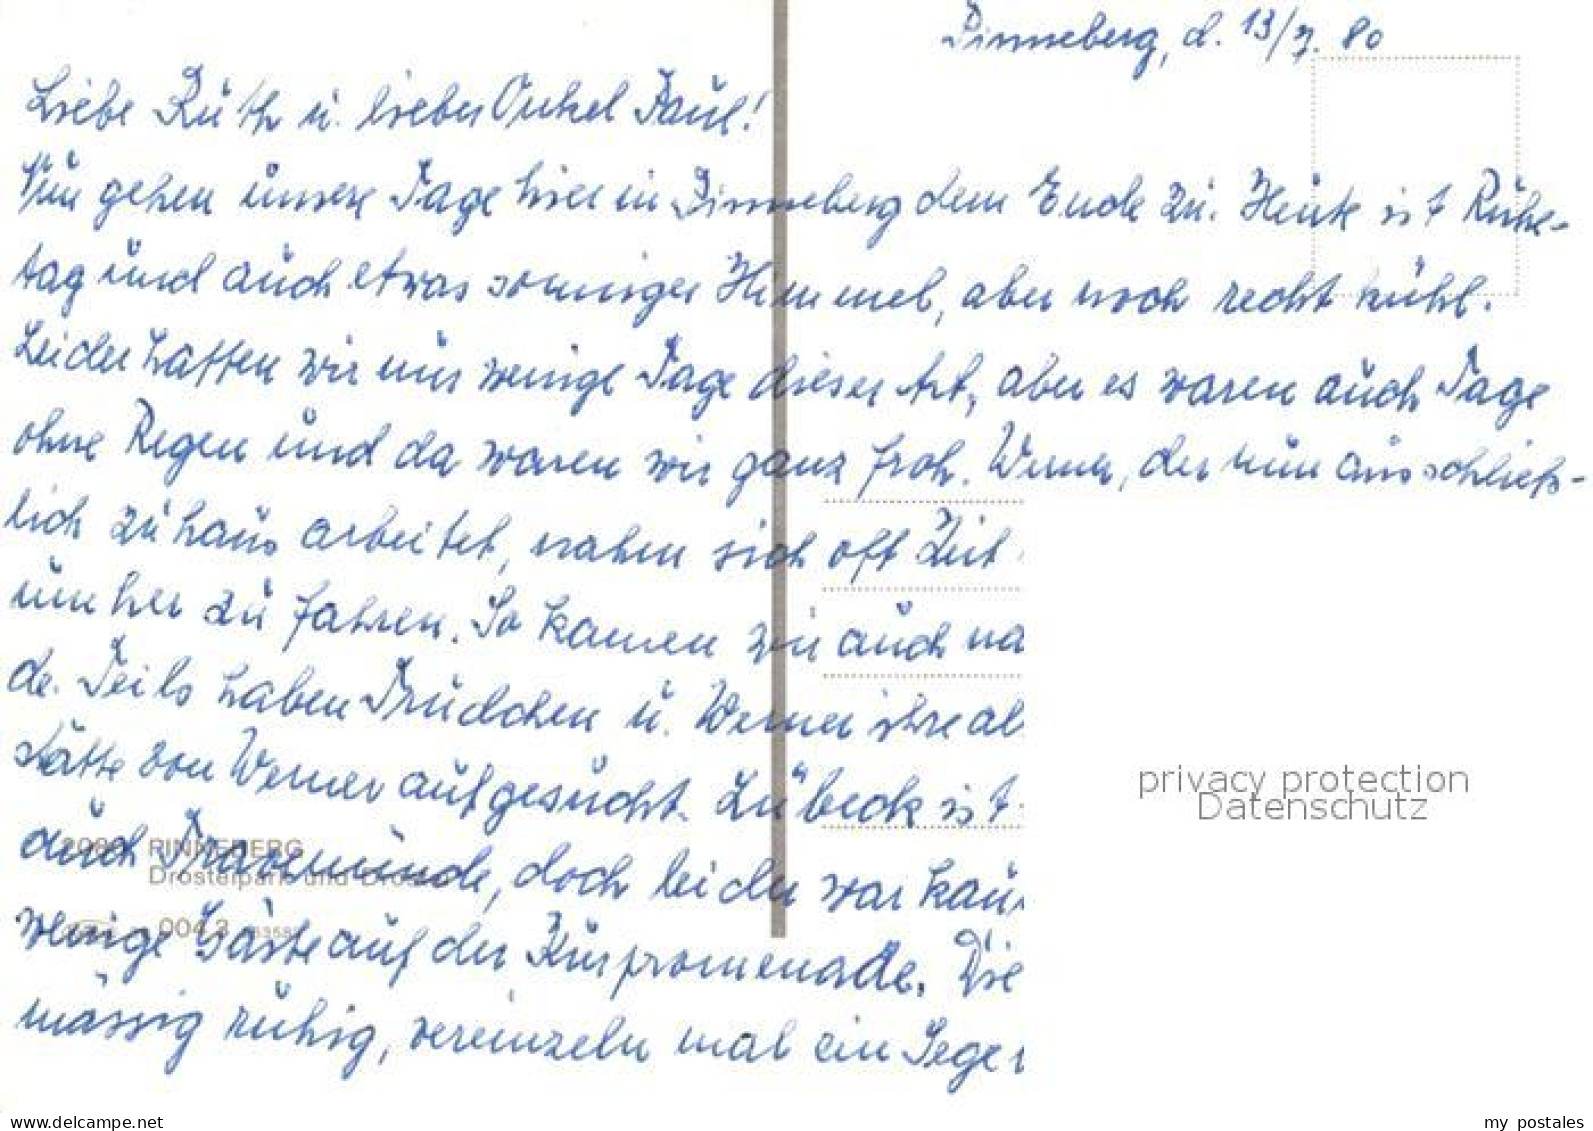 Pinneberg, d. 13/7. 80
Liebe Ruth u. lieber Onkel Paul!
Nun gehen unsere Tage hier in Pinneberg dem Ende zu. Heute ist Ruhe-
tag und auch etwas sonniger Himmel, aber noch recht kühl.
Leider hatten wir nur wenige Tage dieser Art, aber es waren auch Tage
ohne Regen und da waren wir ganz froh. Werner, der nun ausschließ-
lich zu haus arbeitet, nahm sich oft Zeit
umher zu fahren. So kamen wir auch na
de. Teils haben Trudchen u. Werner ihre al
stätte von Werner aufgesucht. Lübeck ist
auch Travemünde, doch leider war kau
wenige Gäste auf der Kurpromenade. Die
mässig ruhig, vereinzeln mal ein Sege
2080 PINNEBERG
Drosteipark und Drostei
004 3
privacy protection
Datenschutz
www.delcampe.net
my_postales